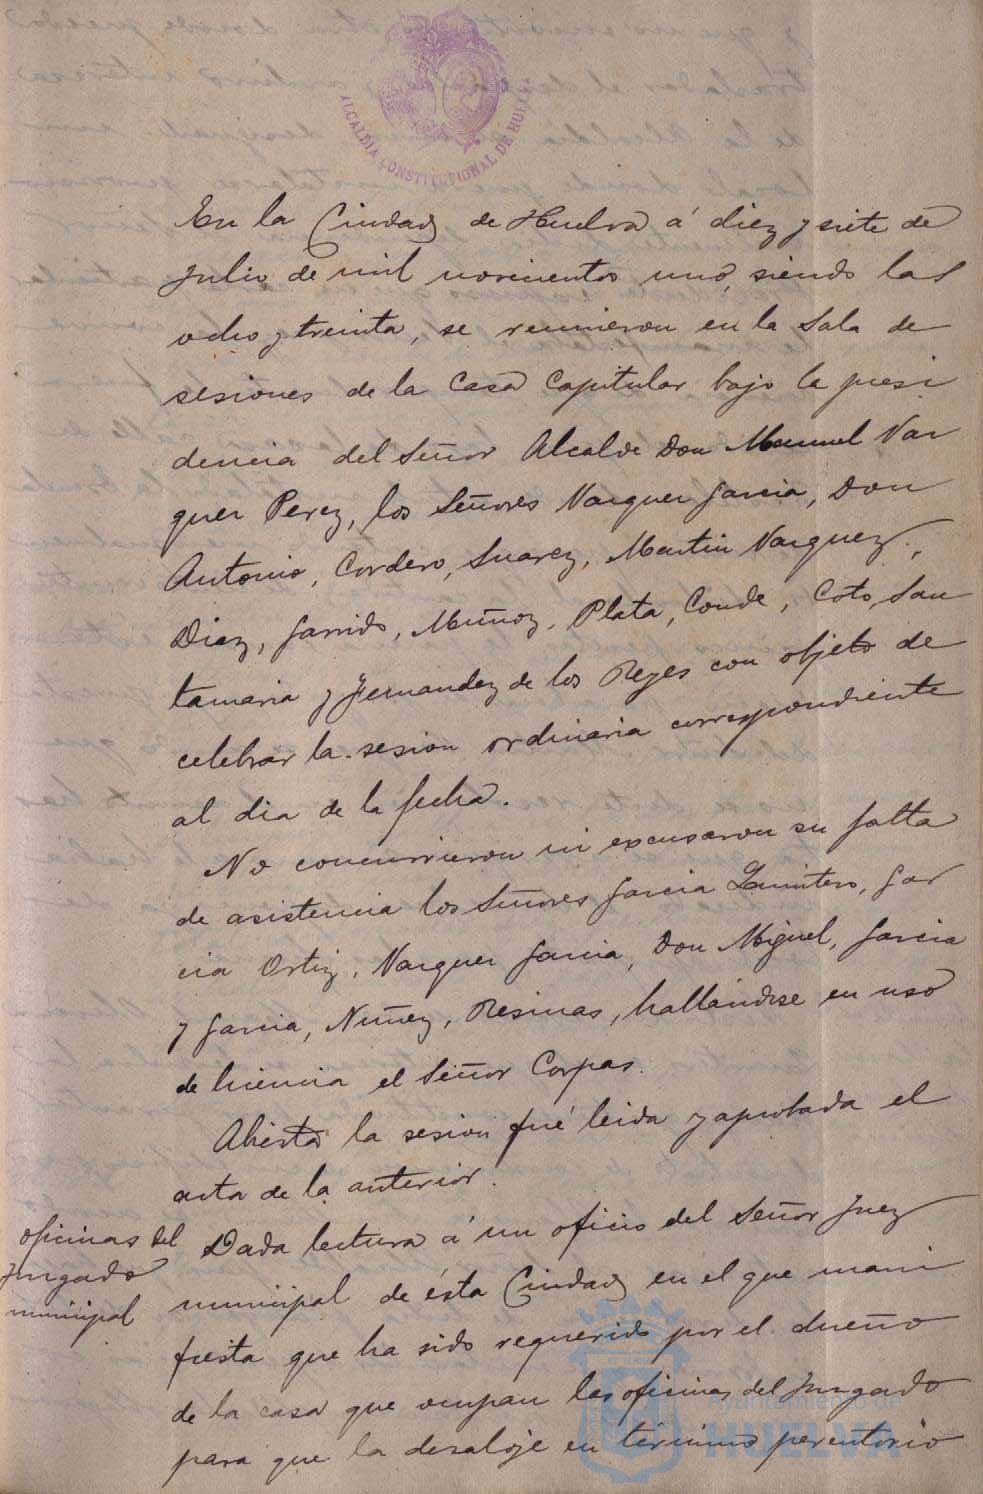 ALCALDIA CONSTITUCIONAL DE HUELVA
En la Ciudad de Huelva á diez y siete de
Julio de mil novecientos uno, siendo las
ocho y treinta, se reunieron en la Sala de
sesiones de la Casa Capitular bajo la presi
dencia del Señor Alcalde Don Manuel Vaz
quez Perez, los Señores Vazquez Garcia, Don
Antonio, Cordero, Suarez, Martin Vazquez,
Diaz, Garrido, Muñoz, Plata, Conde, Coto, San
tamaria y Fernandez de los Reyes con objeto de
celebrar la sesion ordinaria correspondiente
al dia de la fecha.
No concurrieron ni excusaron su falta
de asistencia los Señores Garcia Quintero, Gar
cia Ortiz, Vazquez Garcia, Don Miguel, Garcia
y Garcia, Nuñez, Resinas, hallándose en uso
de licencia el Señor Corpas.
Abierta la sesion fué leida y aprobada el
acta de la anterior.
oficinas del
Juzgado
municipal
Dada lectura á un oficio del Señor Juez
municipal de ésta Ciudad en el que mani
fiesta que ha sido requerido por el dueño
de la casa que ocupan las oficinas del Juzgado
para que la desaloje en término perentorio
Ayuntamiento de
HUELVA